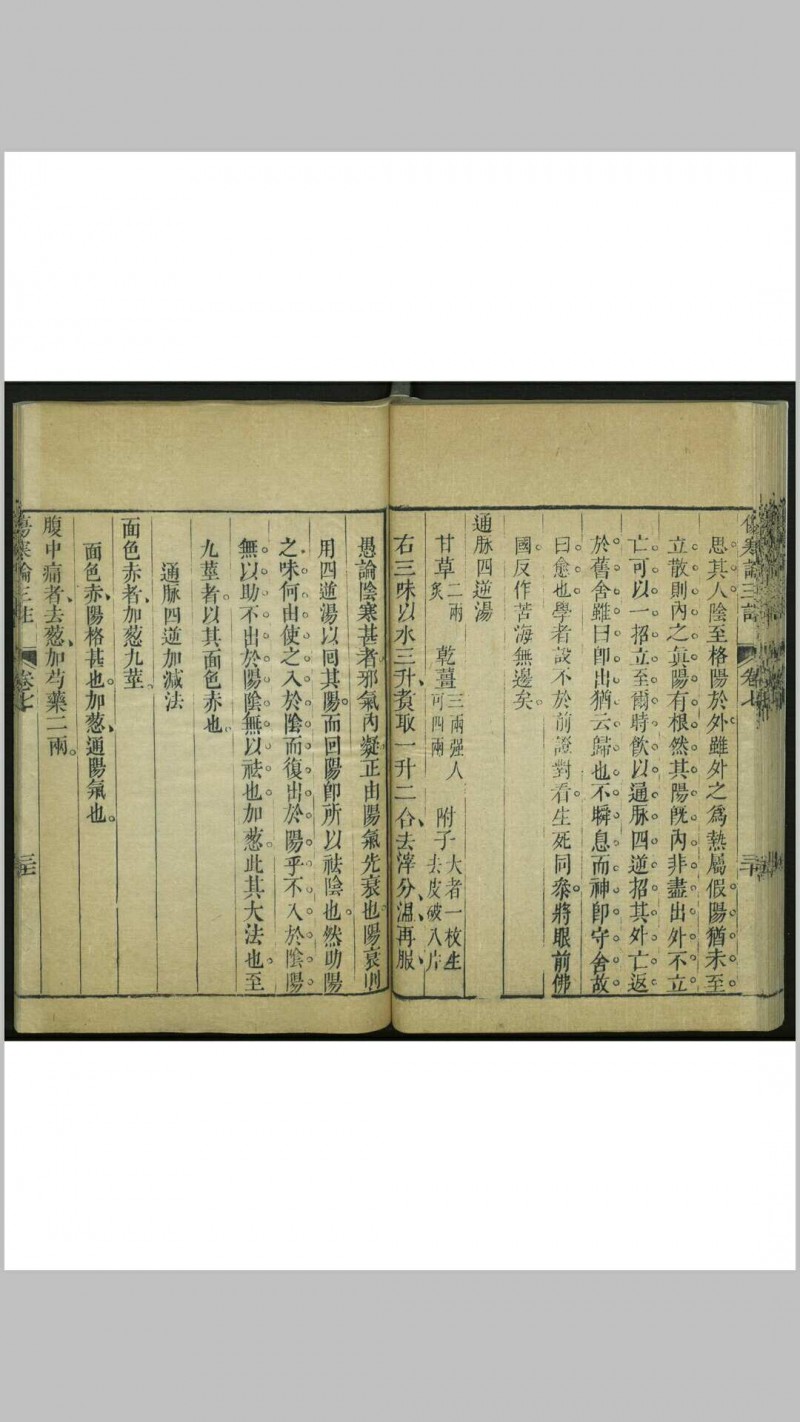 傷寒論三註 卷七 三十
思其人陰至格陽於外雖外之爲熱屬假陽猶未至
立散則內之眞陽有根然其陽旣內非盡出外不立
亡可以一招立至爾時飮以通脉四逆招其外亡返
於舊舍雖曰卽出猶云歸也不瞬息而神卽守舍故
曰愈也學者設不於前證對看生死同叅將眼前佛
國反作苦海無邊矣
通脉四逆湯
甘草二兩炙 乾薑三兩强人可四兩 附子大者一枚生去皮破八片
右三味以水三升煑取一升二合去滓分溫再服
愚論陰寒甚者邪氣內凝正由陽氣先衰也陽衰則
用四逆湯以回其陽而回陽卽所以祛陰也然助陽
之味何由使之入於陰而復出於陽乎不入於陰陽
無以助不出於陽陰無以祛也加葱此其大法也至
九莖者以其面色赤也
通脉四逆加減法
面色赤者加葱九莖
面色赤陽格甚也加葱通陽氣也
腹中痛者去葱加芍藥二兩
傷寒論三註 卷七 三十